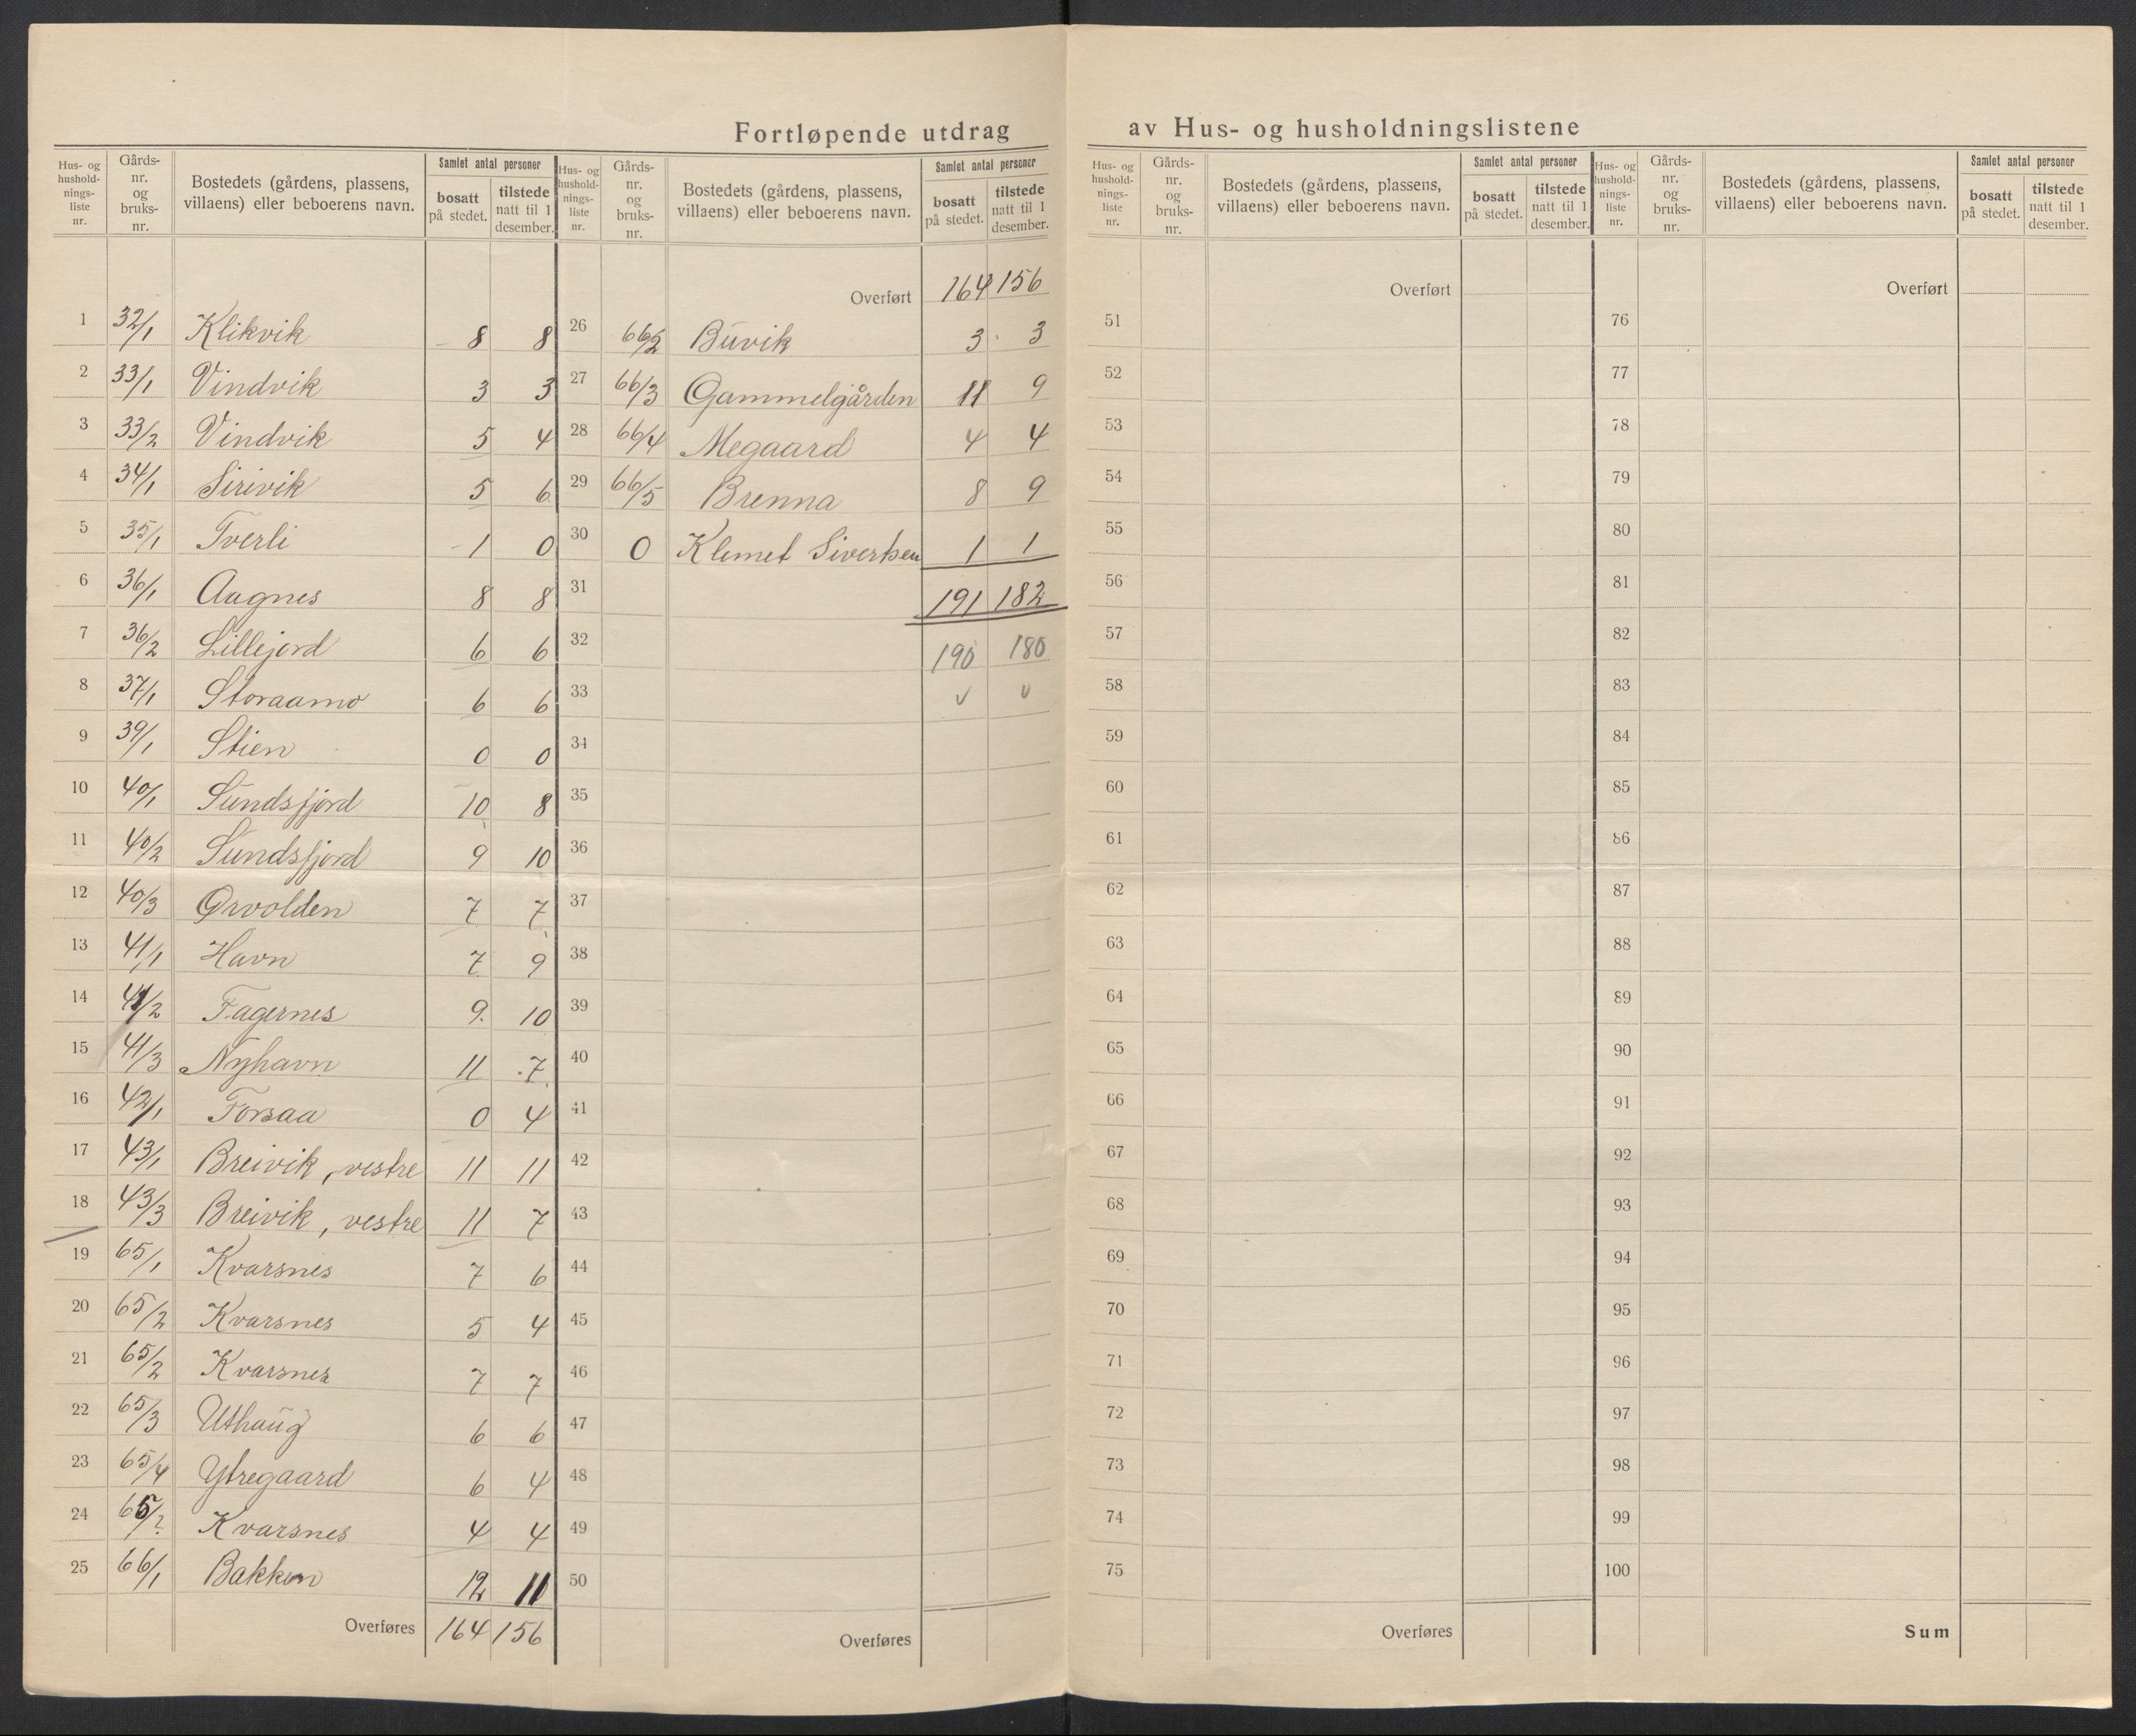 Fortløpende utdrag av Hus- og husholdningslistene
Hus- og hushold-nings-liste nr. | Gårds-nr. og bruks-nr. | Bostedets (gårdens, plassens, villaens) eller beboerens navn. | Samlet antal personer | bosatt på stedet. | tilstede natt til 1 desember.
1 32/1 Klikvik 8 8
2 33/1 Vindvik 3 3
3 33/2 Vindvik 5 4
4 34/1 Sirivik 5 6
5 35/1 Tverli 1 0
6 36/1 Aagnes 8 8
7 36/2 Lillejord 6 6
8 37/1 Storaamo 6 6
9 39/1 Stien 0 0
10 40/1 Sundsfjord 10 8
11 40/2 Sundsfjord 9 10
12 40/3 Ørvolden 7 7
13 41/1 Havn 7 9
14 41/2 Fagernes 9 10
15 41/3 Nyhavn 11 7
16 42/1 Forsaa 0 4
17 43/1 Breivik, vestre 11 11
18 43/3 Breivik, vestre 11 7
19 65/1 Kvarsnes 7 6
20 65/2 Kvarsnes 5 4
21 65/2 Kvarsnes 7 7
22 65/3 Uthaug 6 6
23 65/4 Ytregaard 6 4
24 65/? Kvarsnes 4 4
25 66/1 Bakken 12 11
Overføres 164 156
Hus- og hushold-nings-liste nr. | Gårds-nr. og bruks-nr. | Bostedets (gårdens, plassens, villaens) eller beboerens navn. | Samlet antal personer | bosatt på stedet. | tilstede natt til 1 desember.
Overført 164 156
26 66/2 Buvik 3 3
27 66/3 Gammelgården 11 9
28 66/4 Megaard 4 4
29 66/5 Brenna 8 9
30 0 Klemet Sivertsen 1 1
31 191 182
32 190 180
33 v v
34
35
36
37
38
39
40
41
42
43
44
45
46
47
48
49
50
Overføres
Hus- og hushold-nings-liste nr. | Gårds-nr. og bruks-nr. | Bostedets (gårdens, plassens, villaens) eller beboerens navn. | Samlet antal personer | bosatt på stedet. | tilstede natt til 1 desember.
Overført
51
52
53
54
55
56
57
58
59
60
61
62
63
64
65
66
67
68
69
70
71
72
73
74
75
Overføres
Hus- og hushold-nings-liste nr. | Gårds-nr. og bruks-nr. | Bostedets (gårdens, plassens, villaens) eller beboerens navn. | Samlet antal personer | bosatt på stedet. | tilstede natt til 1 desember.
Overført
76
77
78
79
80
81
82
83
84
85
86
87
88
89
90
91
92
93
94
95
96
97
98
99
100
Sum